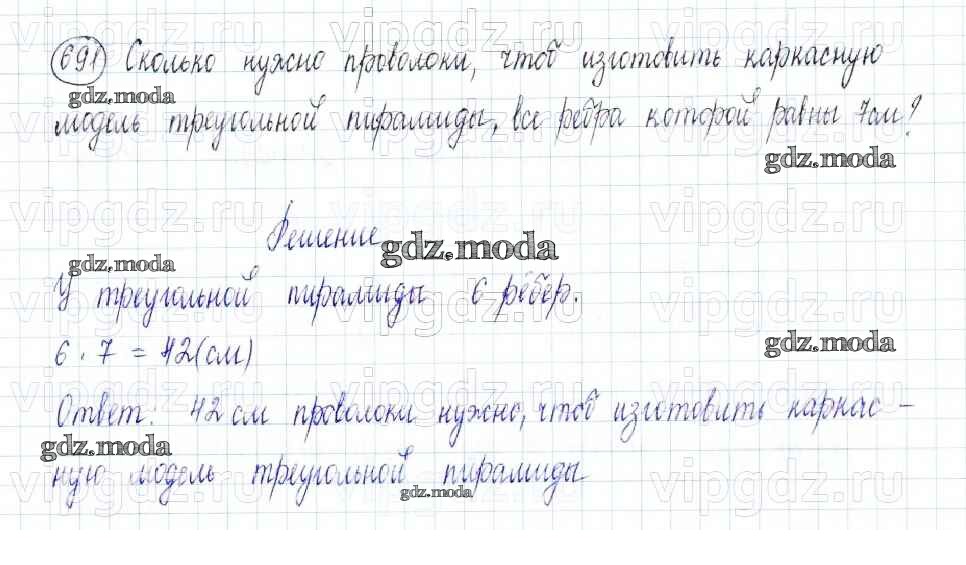 691 Сколько нужно проволоки, чтоб изготовить каркасную
модель треугольной пирамиды, все рёбра которой равны 7см?
Решение
У треугольной пирамиды 6 рёбер.
6 · 7 = 42(см)
Ответ: 42 см проволоки нужно, чтоб изготовить каркас-
ную модель треугольной пирамиды
gdz.moda
gdz.moda
gdz.moda
gdz.moda
gdz.moda
gdz.moda
gdz.moda
vipgdz.ru